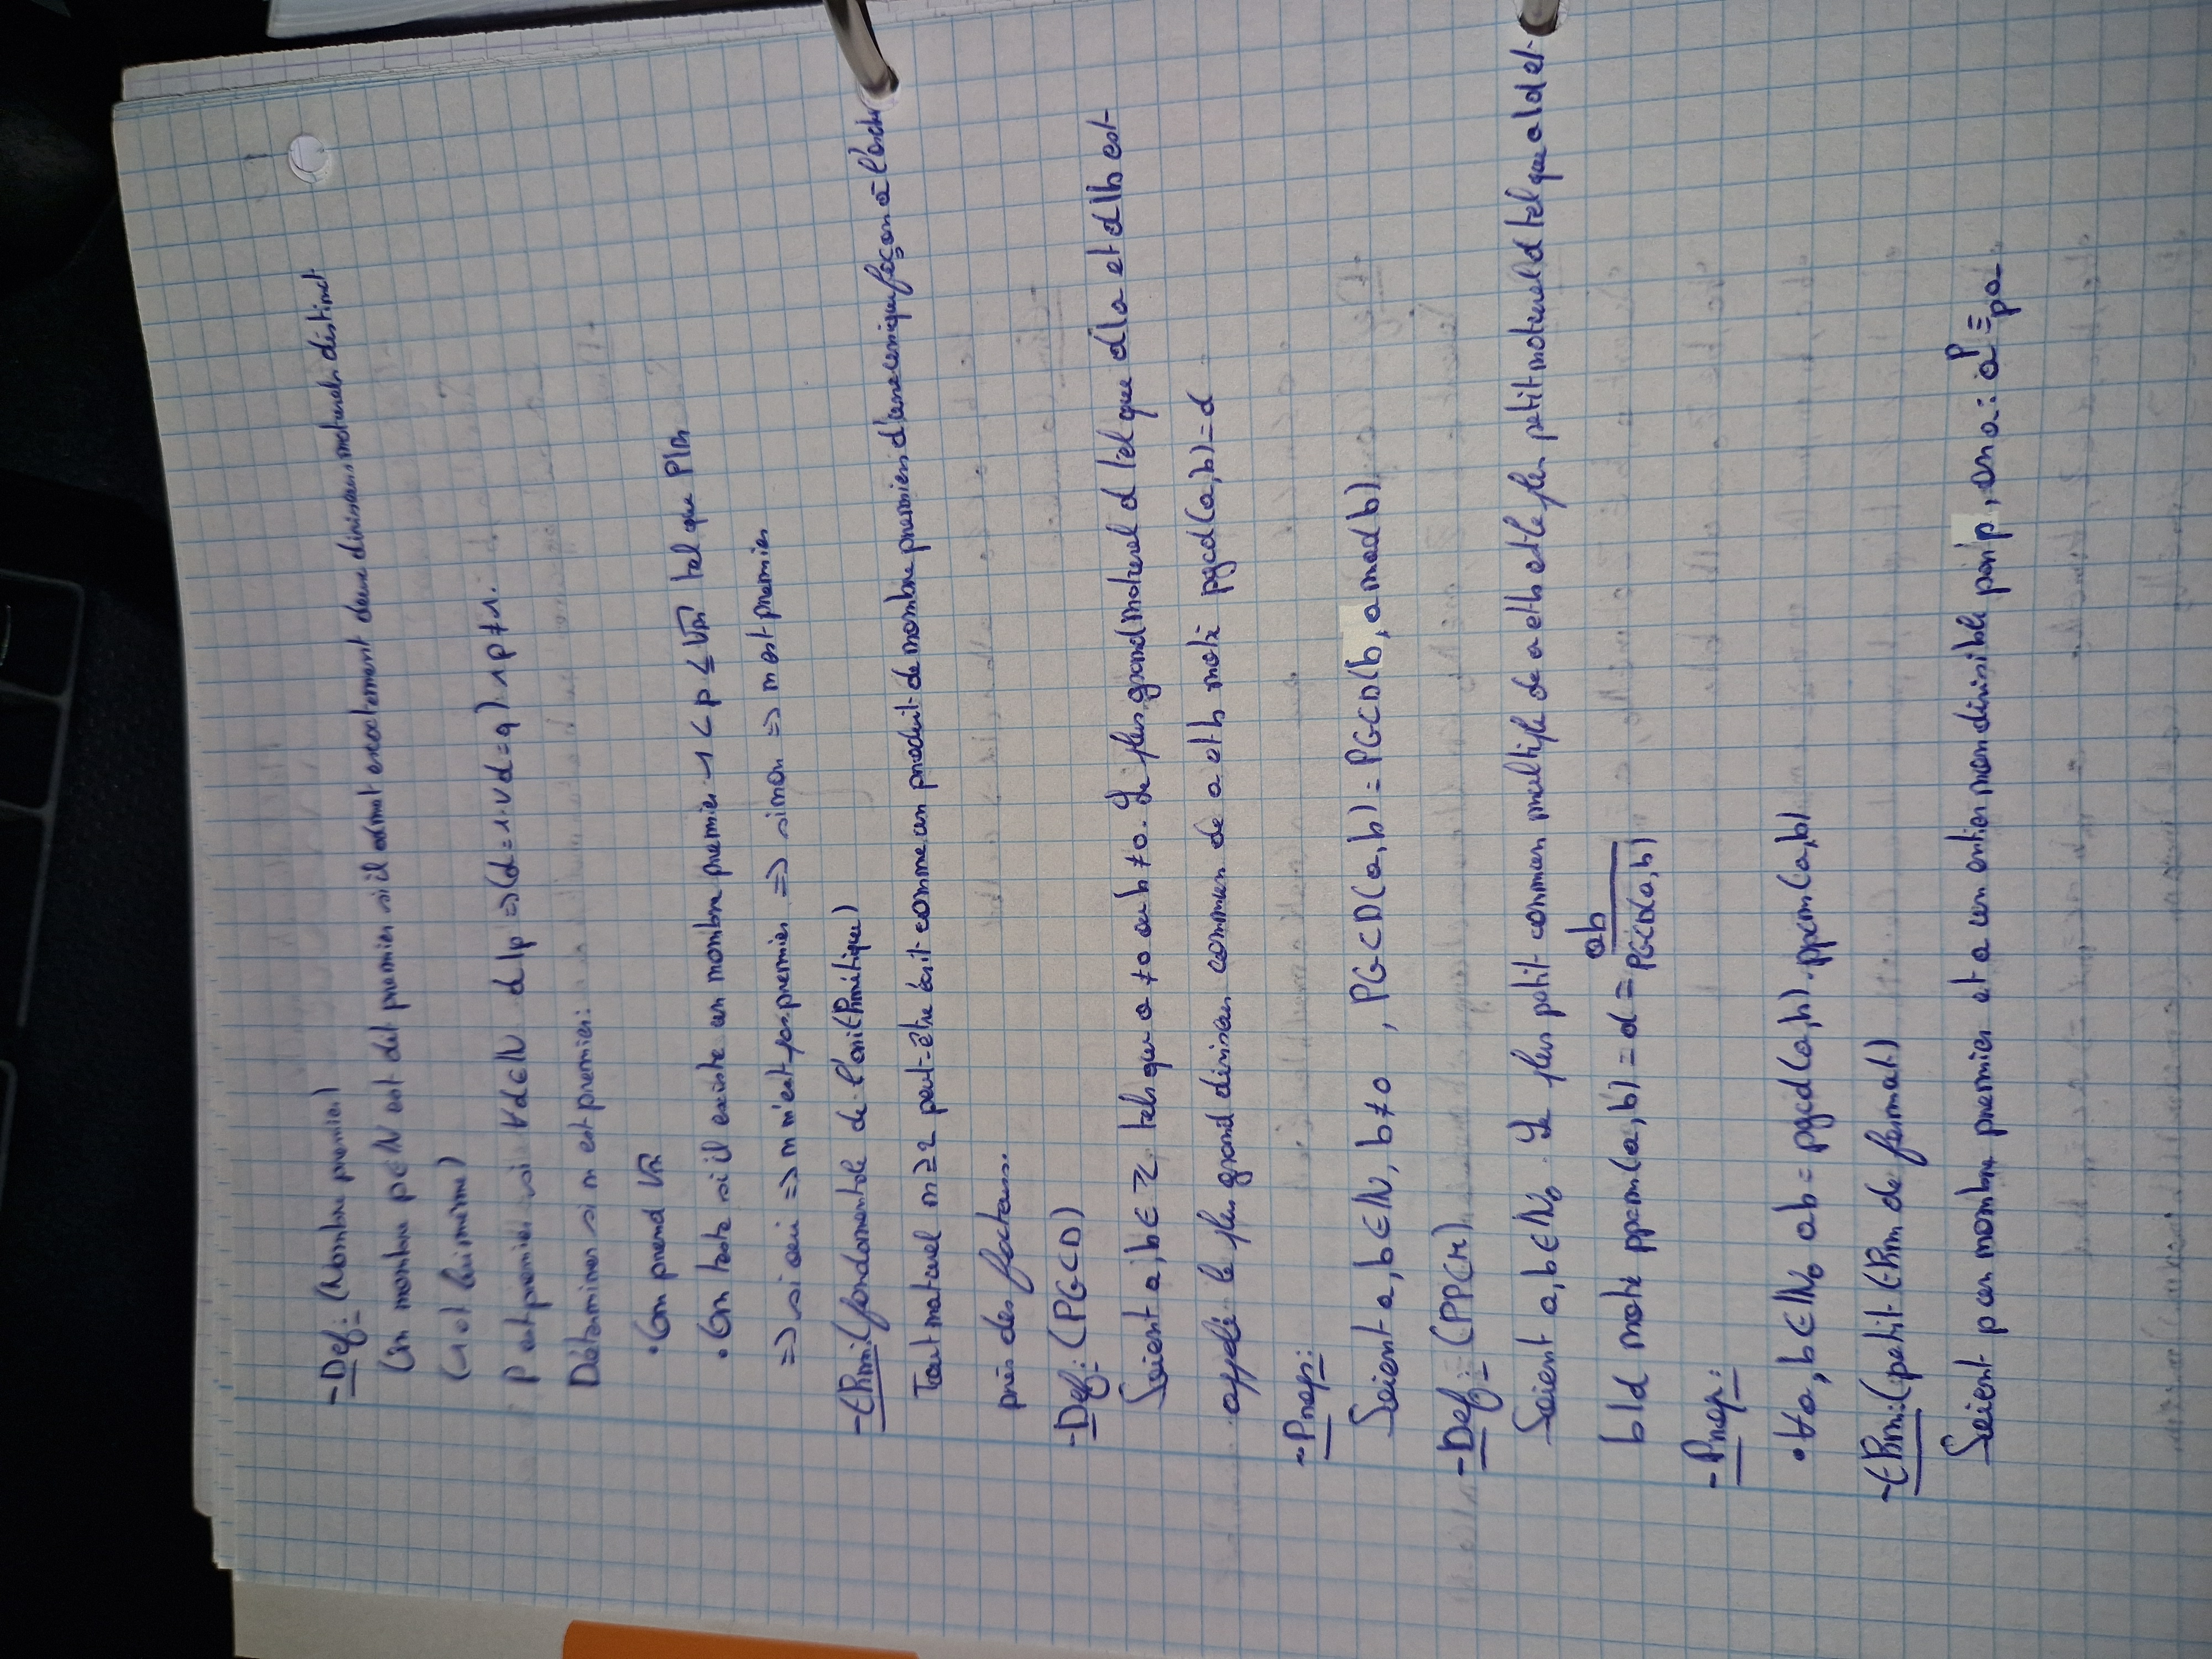 - Def: (Nombre premier)
Un nombre p ∈ ℕ est dit premier si il admet exactement deux diviseurs naturels distinct
(1 et lui même)
P est premier si ∀d ∈ ℕ d|p => (d = 1 ∨ d = q) ∧ p ≠ 1.
Déterminer si n est premier:
• On prend √n
• On teste si il existe un nombre premier 1 < p ≤ √n tel que P|n
=> si oui => n n'est pas premier => sinon => n est premier
- thm: (fondamentale de l'arithmétique)
Tout naturel n ≥ 2 peut-être écrit comme un produit de nombre premiers d'une unique façon à l'ordre
près des facteurs.
- Def: (PGCD)
Soient a, b ∈ ℤ tels que a ≠ 0 ou b ≠ 0. Le plus grand naturel d tel que d|a et d|b est
appelé le plus grand diviseur commun de a et b noté pgcd(a,b) = d
- Prop:
Soient a, b ∈ ℕ, b ≠ 0 , PGCD(a,b) = PGCD(b, a mod b)
- Def: (PPCM)
Soient a, b ∈ ℕ₀. Le plus petit commun multiple de a et b est le plus petit naturel d tel que a|d et
b|d noté ppcm(a,b) = d = ab / PGCD(a,b)
- Prop:
• ∀a, b ∈ ℕ₀ ab = pgcd(a,b) . ppcm(a,b)
- thm: (petit thm de fermat)
Soient p un nombre premier et a un entier non divisible par p, on a : aᴾ ≡ₚ a